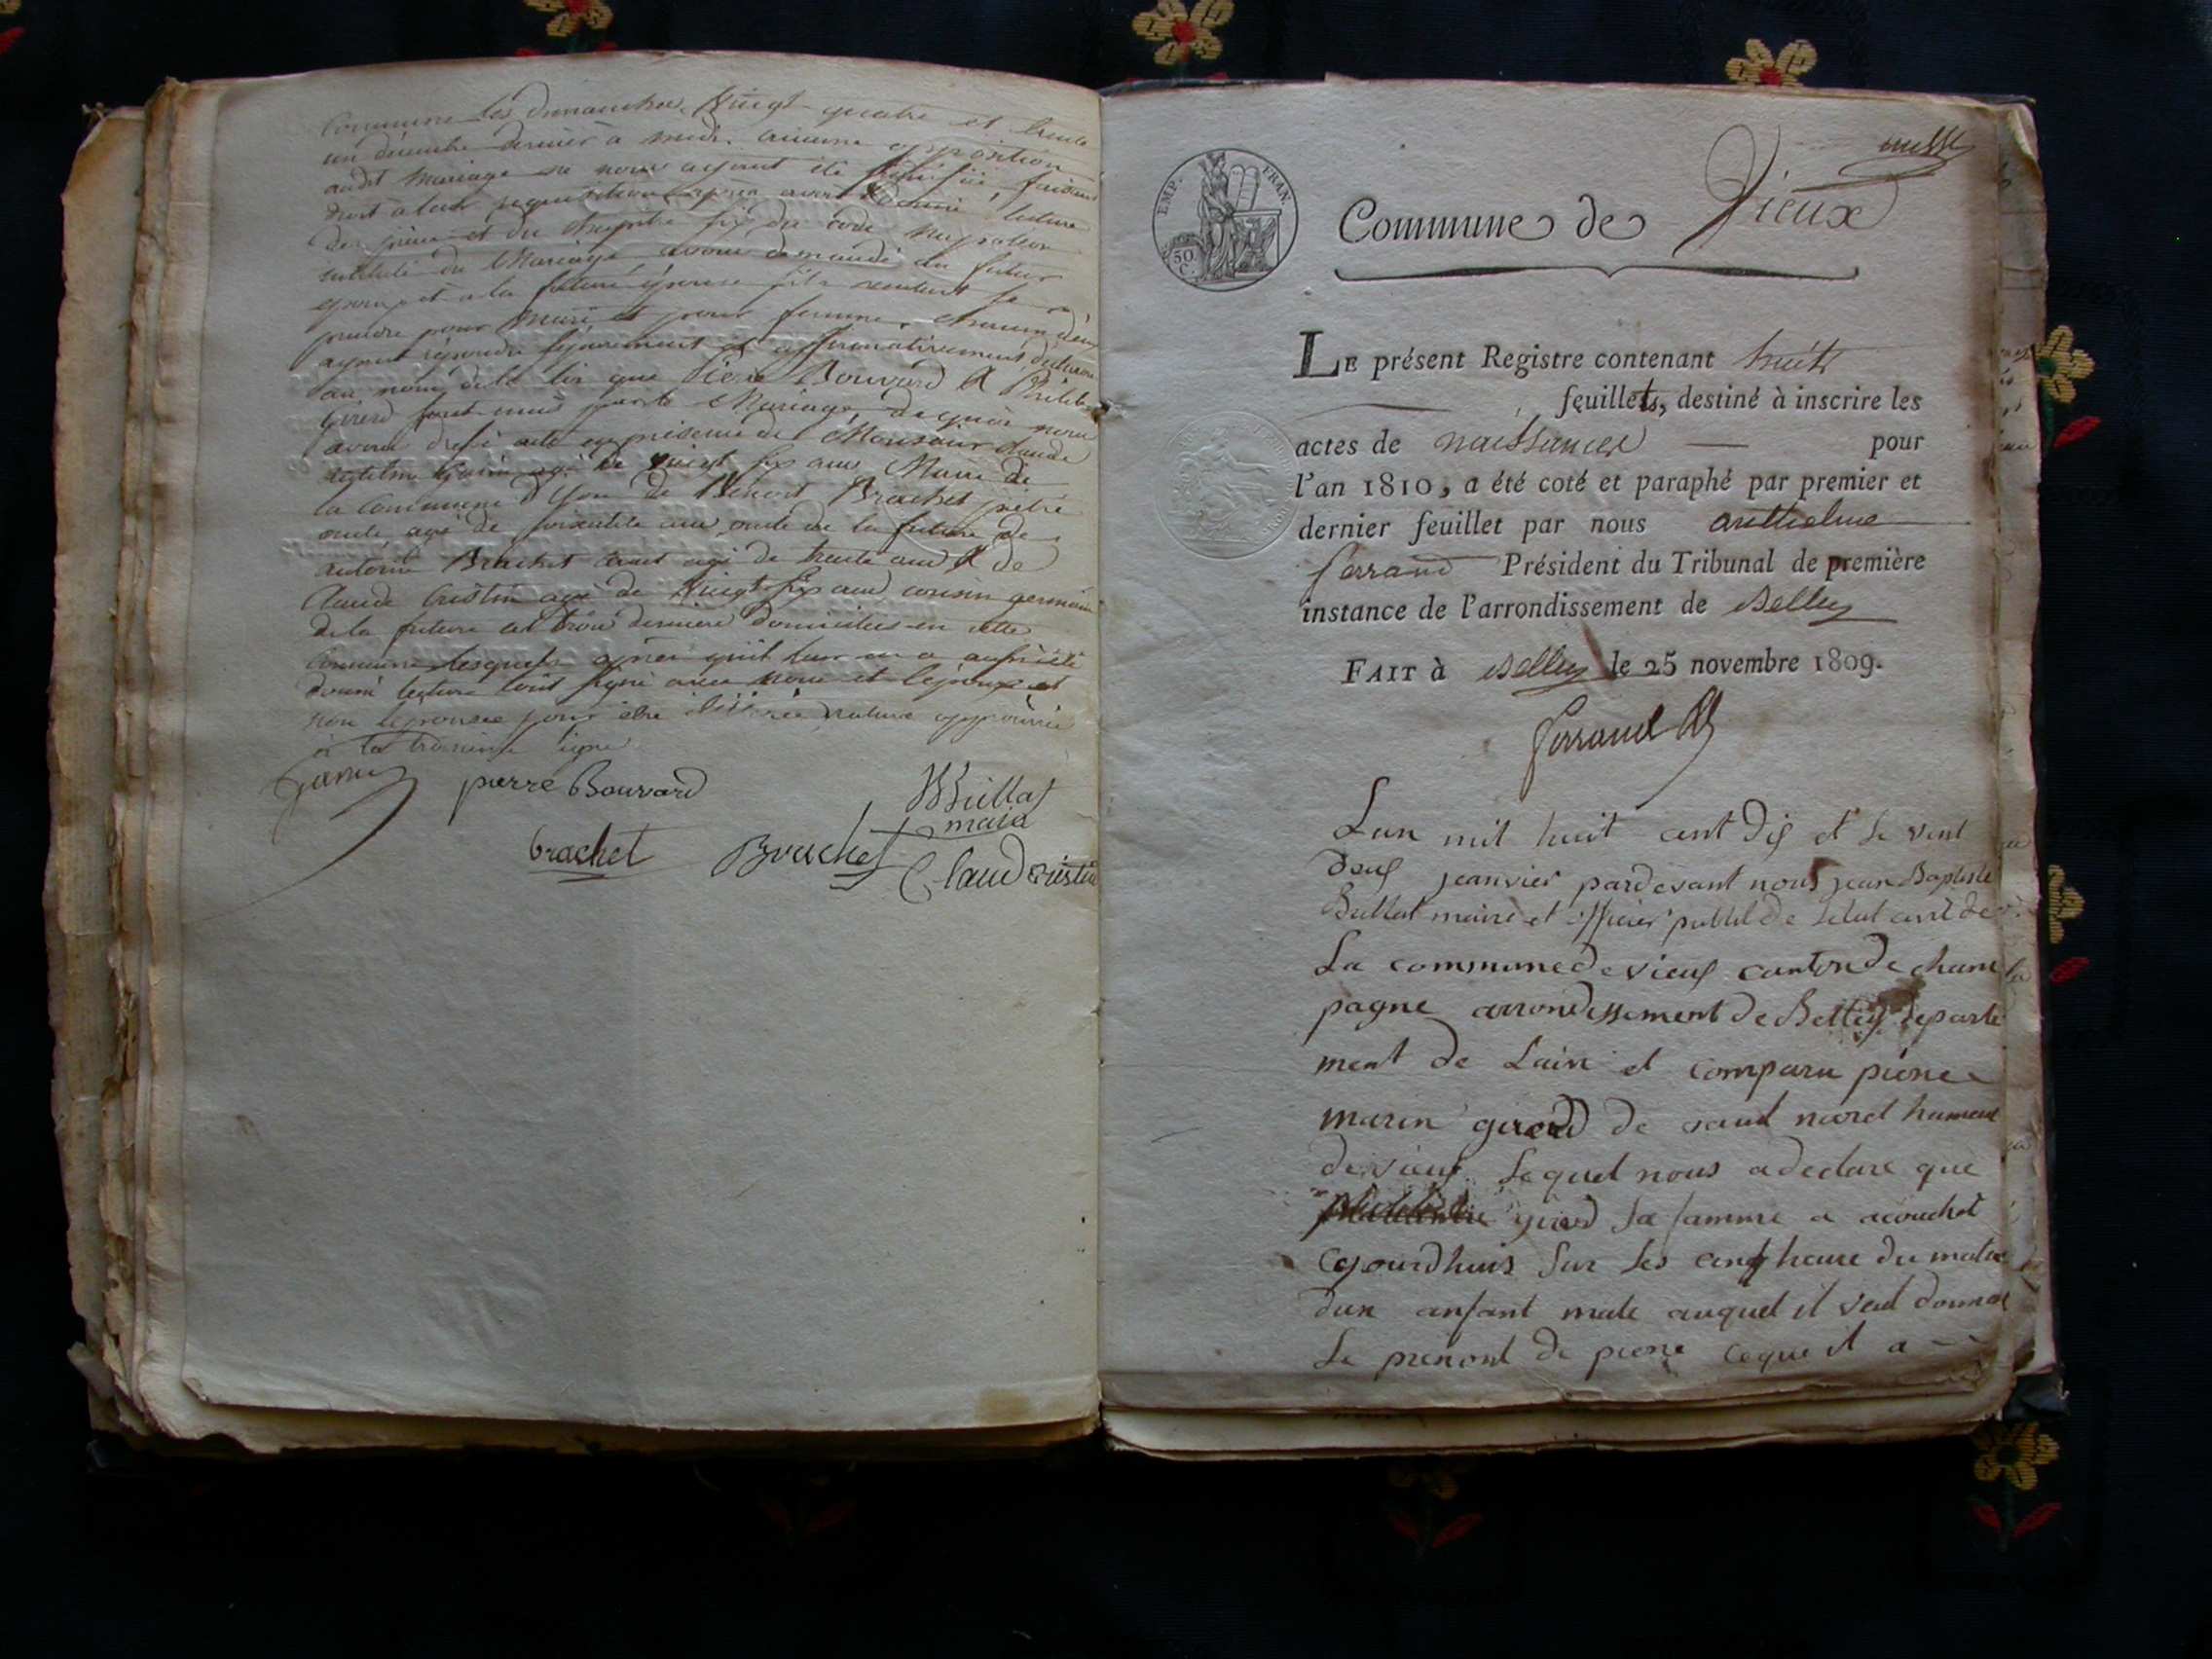 Commune les dimanches vingt quatre et trente
un décembre dernier à midi. aucune opposition
audit mariage ne nous ayant été faisant
droit à leur requisition après avoir donné lecture
des pièces et du chapitre six du code napoléon
intitulé du Mariage avons demandé au futur
époux et a la future épouse s'ils veulent se
prendre pour mari et pour femme, chacun d'eux
ayant répondu séparement et affirmativement, déclarons
au nom de la loi que Pierre Bouvard &
Girerd sont unis par le Mariage, de quoi nous
avons dressé acte en présence de Monsieur Claude
agé de vingt six ans, Maire de
la Commune d'Yon de Benoit Brachet prêtre
oncle, agé de ans, oncle de la future de
antoine Brachet agé de trente ans & de
Claude Cristin agé de vingt six ans cousin germain
de la future ces trois derniers domiciliés en cette
Commune lesquels après qu'il leur en a aussi été
donné lecture l'ont signé avec nous et l'époux et
non l'épouse pour être
à la ligne
pierre Bouvard
Bullat
maire
brachet Brachet
Claud Cristin
EMP. FRAN.
50
C.
Commune de Vieux
LE présent Registre contenant huit
feuillets, destiné à inscrire les
actes de naissances pour
l'an 1810, a été coté et paraphé par premier et
dernier feuillet par nous anthelme
ferrand Président du Tribunal de première
instance de l'arrondissement de Belley
FAIT à Belley le 25 novembre 1809.
ferrand
Lan mil huit cent dix et le vent
deux jeanvier pardevant nous jean Baptiste
Bullat maire et officier publil de letat civil de
La commune de vieux canton de cham
pagne arrondissement de Belley departe
ment de Lain et comparu pierre
marin girerd de
de vieux lequel nous a declare que
girerd sa famme a acouchet
cejourdhuis sur les cinq heure du matin
dun anfant male auquel il veut donner
Le prenont de pierre ce que il a